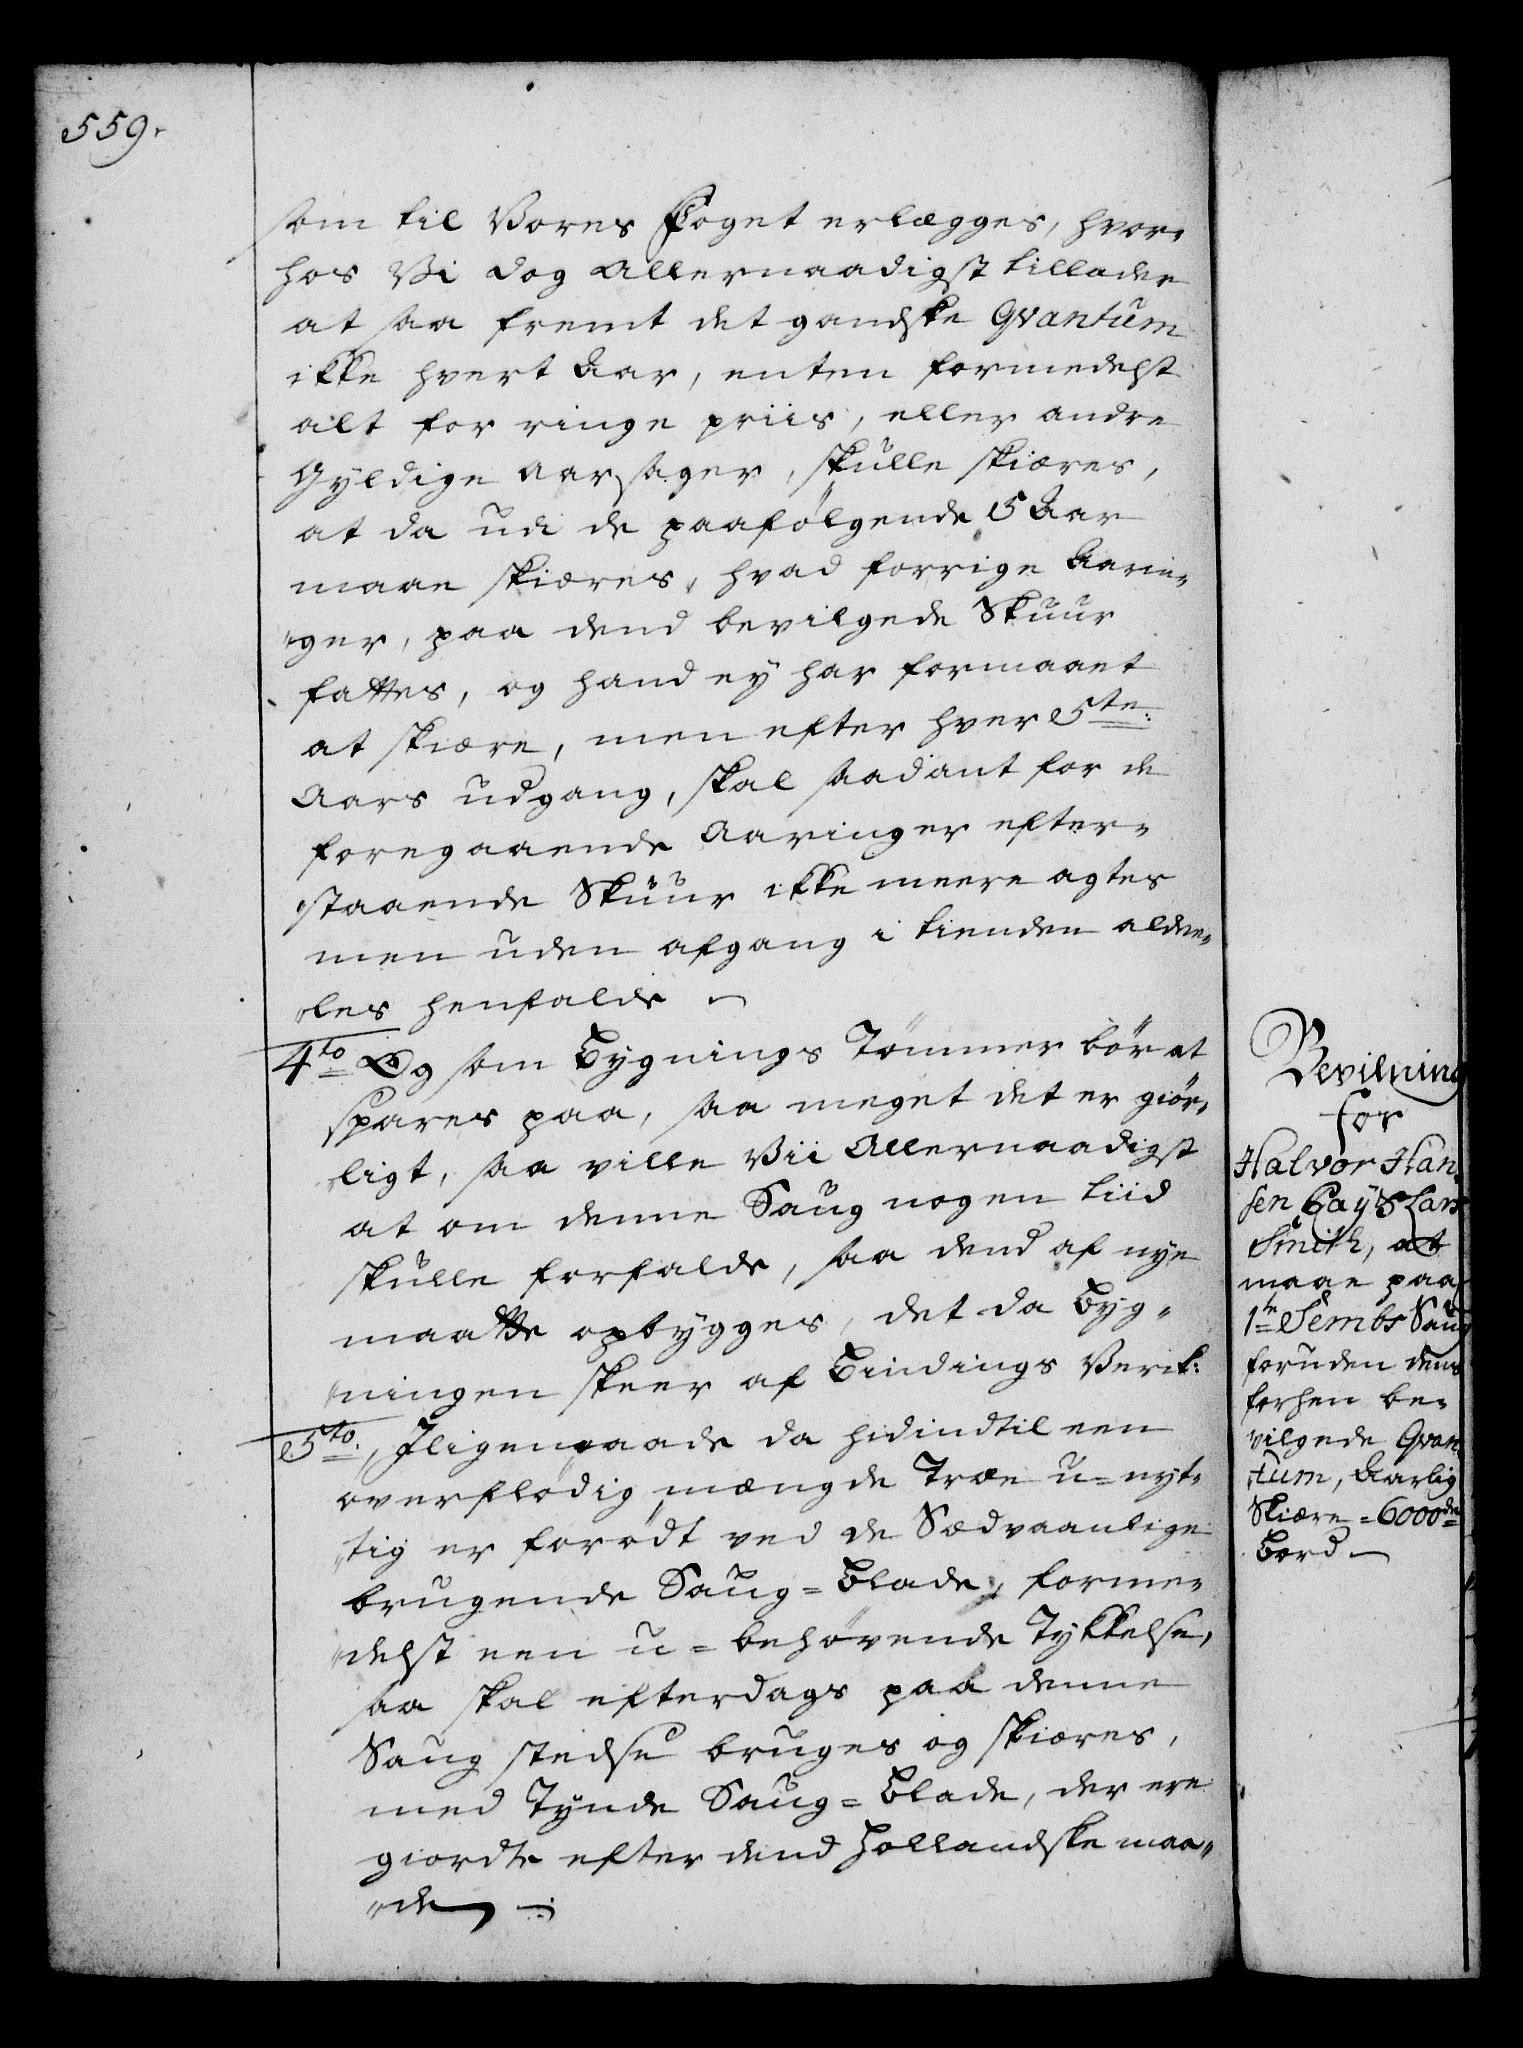 559.
som til Vores Foget erlægges, hvor„
hos Vi dog Allernaadigst tillader
at saa fremt det gandske Qvantum
ikke hvert Aar, enten formedelst
alt for ringe priis, eller andre
Gyldige Aarsager, skulle skiæres,
at da udi de paafølgende 5 Aar
maae skiæres, hvad forrige Aarin„
„ger, paa dend bevilgede Skuur
fattes, og hand ey har formaaet
at skiære, men efter hver 5te:
Aars udgang, skal saadant for de
foregaaende Aaringer efter„
staaende Skuur ikke meere agtes
men uden afgang i tienden alde„
„les henfalde
4to Og som Bygnings Tømmer bør at
spares paa, saa meget det er giør„
„ligt, saa ville Vii Allernaadigst
at om denne Saug nogen tiid
skulle forfalde, saa dend af nye
maatte opbygges, det da Byg„
„ningen skeer af Bindings Verck:
5to. Iligemaade da hidindtil een
overflødig mængde Træe u=nyt„
„tig er forødt ved de Sædvaanlige
brugende Saug=Blade, forme„
„delst een u=behøvende Tykkelse,
saa skal efterdags paa denne
Saug stedse bruges og skiæres,
med Tynde Saug=Blade, der ere
giordte efter dend Hollandske maa„
„de
Bevilning
for
Halvor Han„
sen Lars
Smith, at
maae paa
1te Sembs Saug
foruden dend
forhen be„
vilgede Qvan„
„tum, Aarlig
Skiære =6000de
Bord